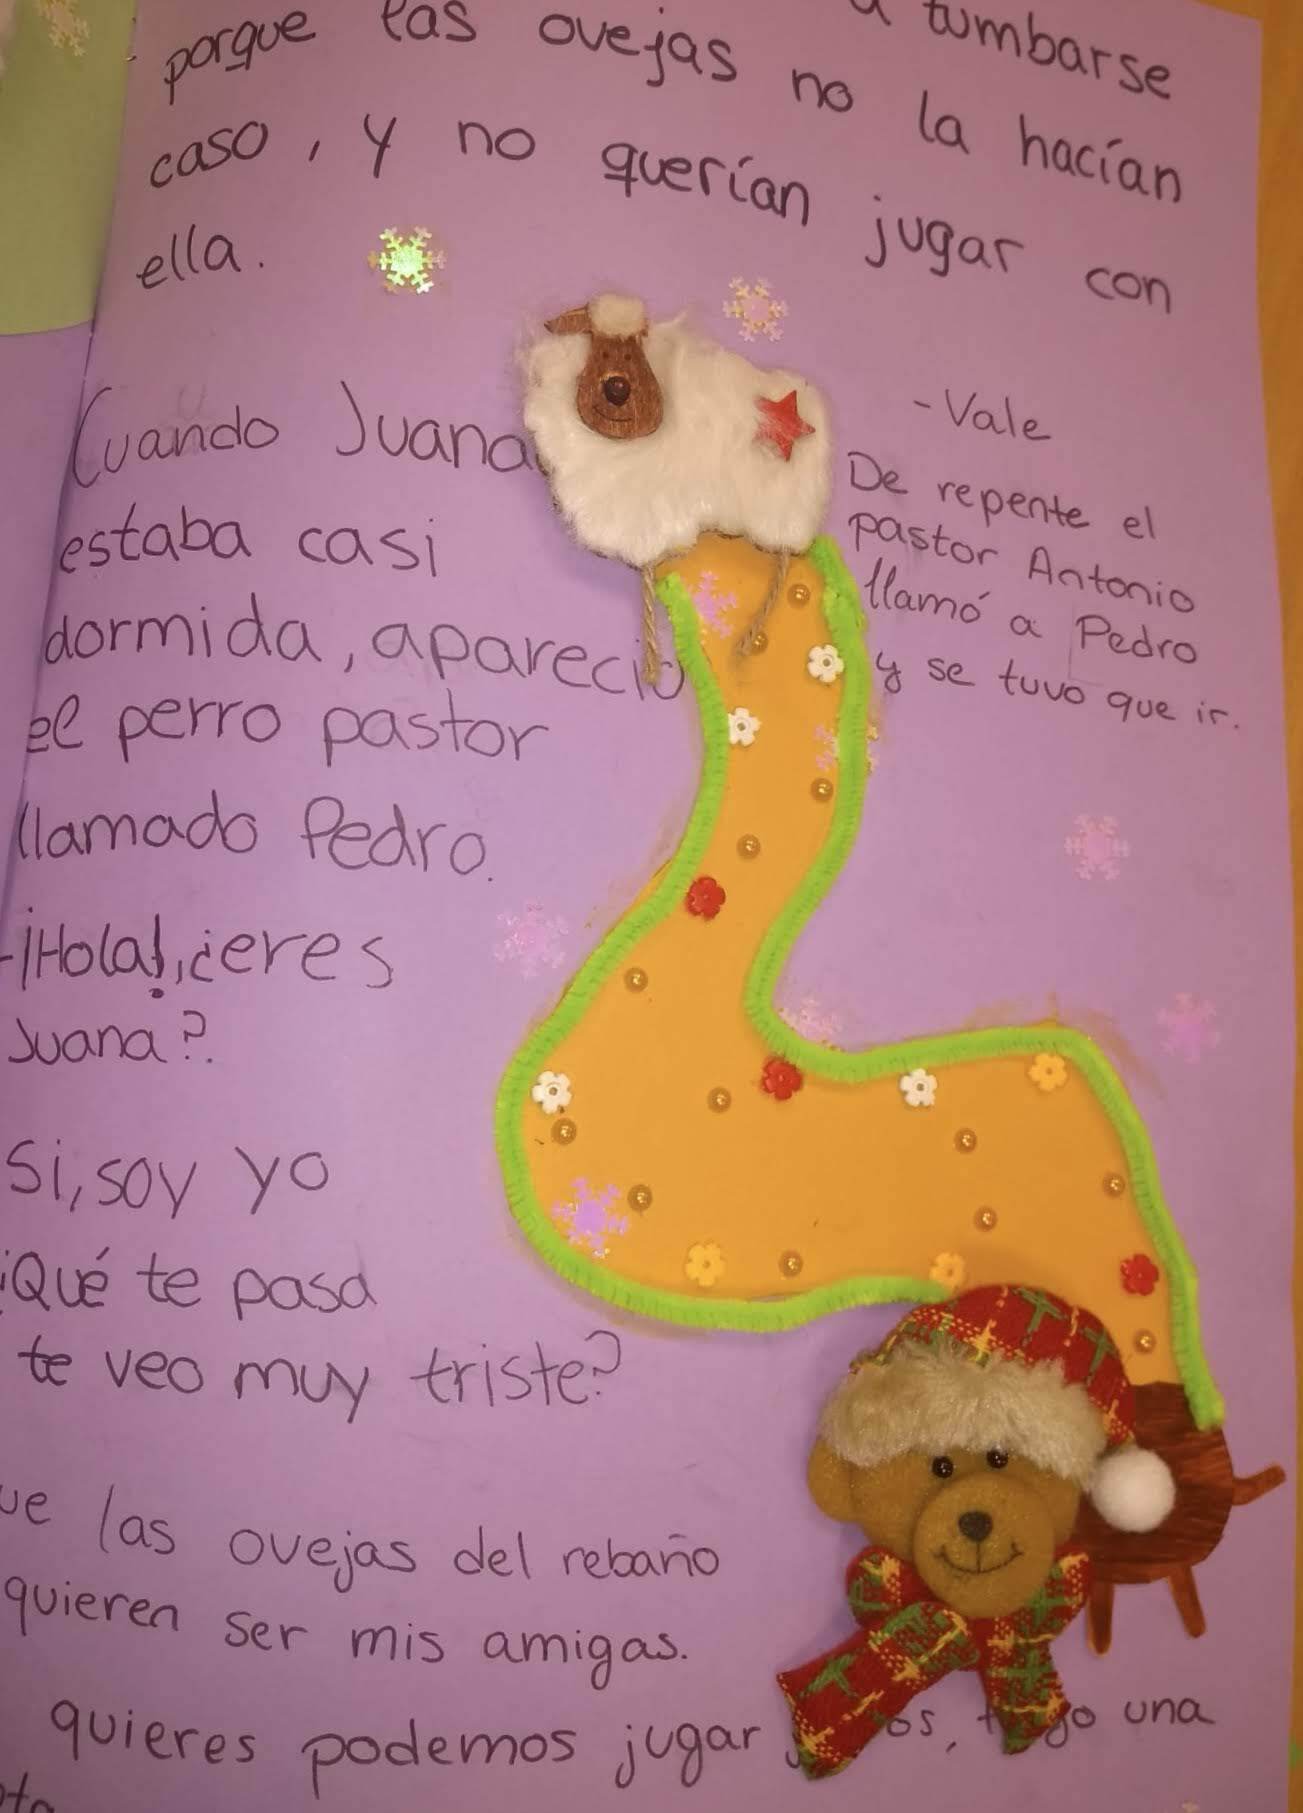 a tumbarse
porque las ovejas no la hacían
caso, y no querían jugar con
ella.
Cuando Juana
estaba casi
dormida, apareció
el perro pastor
llamado Pedro.
-¡Hola!, ¿eres
Juana?.
Si, soy yo
¿Qué te pasa
te veo muy triste?
las ovejas del rebaño
quieren ser mis amigas.
quieres podemos jugar una
-Vale
De repente el
pastor Antonio
llamó a Pedro
y se tuvo que ir.